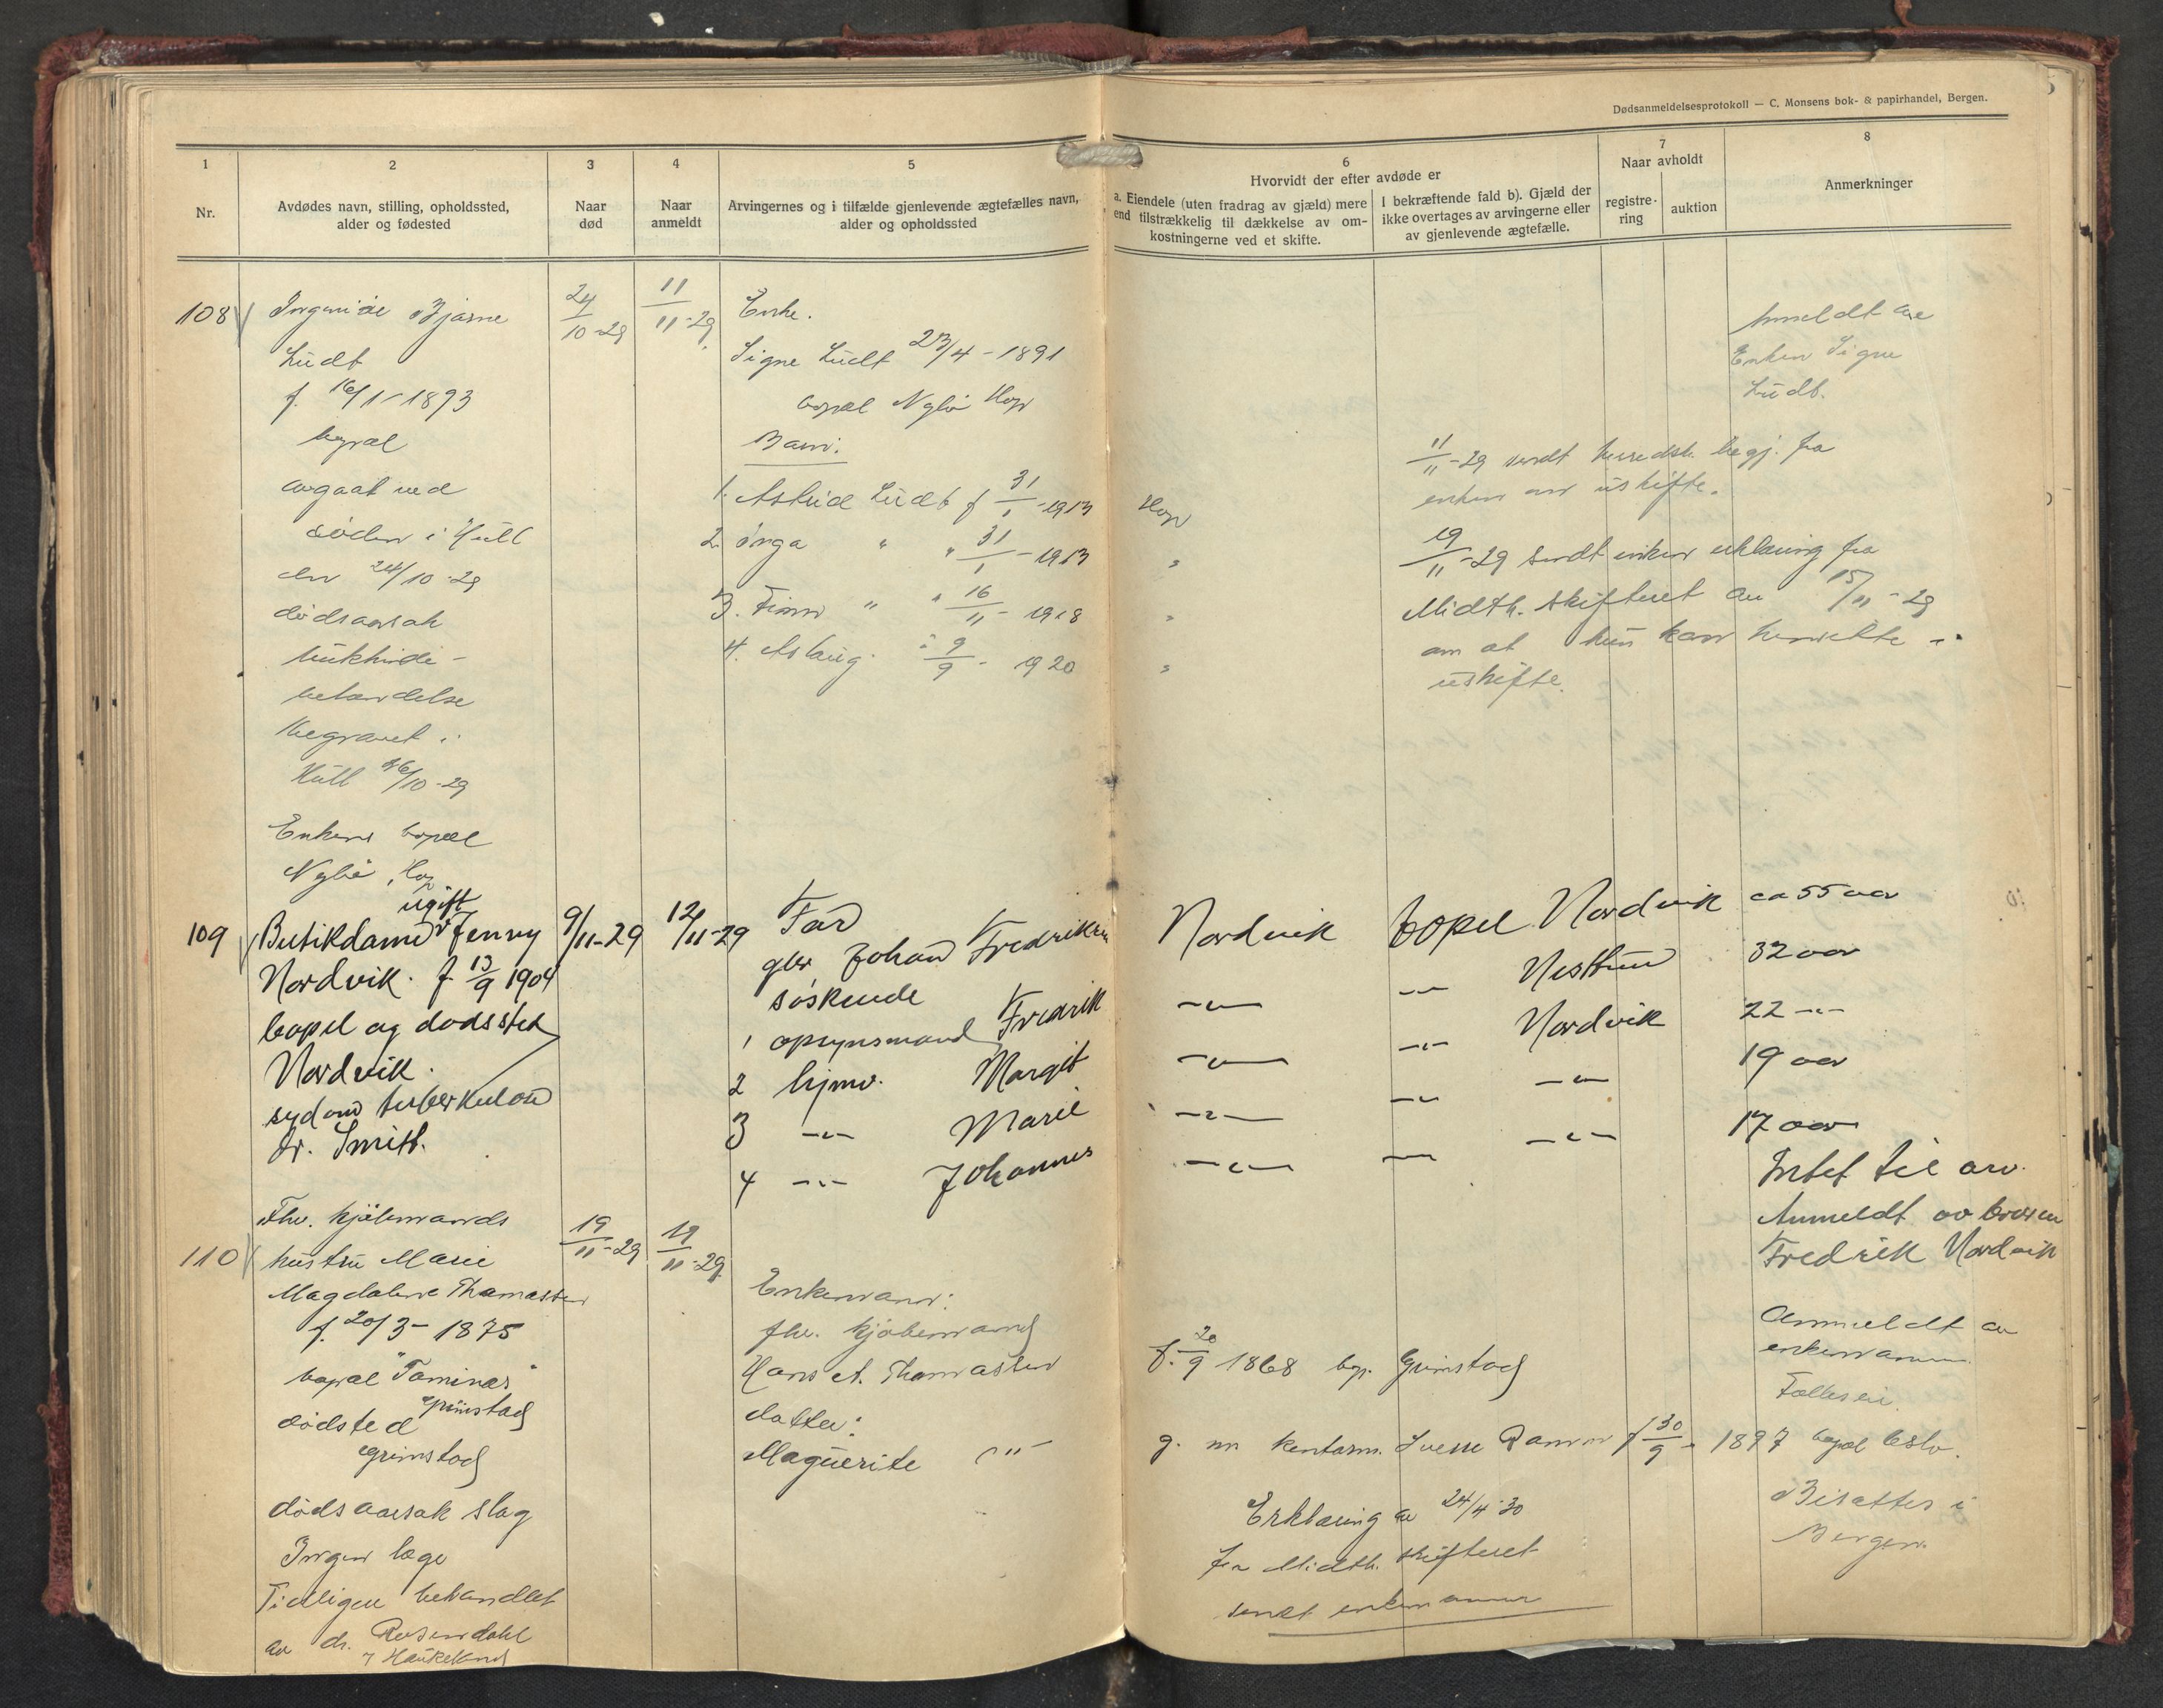 Dødsanmeldelsesprotokoll — C. Monsens bok- & papirhandel, Bergen.
1
2
3
4
5
6
7
8
Nr.
Avdødes navn, stilling, opholdssted,
alder og fødested
Naar
død
Naar
anmeldt
Arvingernes og i tilfælde gjenlevende ægtefælles navn,
alder og opholdssted
Hvorvidt der efter avdøde er
a. Eiendele (uten fradrag av gjæld) mere
end tilstrækkelig til dækkelse av om-
kostningerne ved et skifte.
I bekræftende fald b). Gjæld der
ikke overtages av arvingerne eller
av gjenlevende ægtefælle.
Naar avholdt
registre-
ring
auktion
Anmerkninger
108
Ingeniør Bjarne
Lüdt
f. 16/1-1893
bopæl
avgaat ved
døden i Hull
den 24/10-29
dødsaarsak
behandelse
Begravet i
Hull /10-29
Enkens bopæl
Nylü, Hop
24/10-29
11/11-29
Enke.
Signe Lüdt 23/4-1891
bopæl Nylü Hop
Barn:
1. Astrid Lüdt f 31/1-1913 Hop
2. Inga " " 31/1-1913 "
3. Finn " " 16/11-1918 "
4. Aslaug " 9/9-1920 "
11/11-29 sendt herredsk. begj. fra
enken om uskifte.
19/11-29 sendt enken erklæring fra
Midth. skifteret av 15/11-29
om at hun kan hensitte i
uskifte.
Anmeldt av
Enken Signe
Lüdt.
109
ugift
Butikdame Jenny
Nordvik. f. 13/9 1904
bopel og dødssted
Nordvik.
sygdom tuberkulose
dr. Smitt.
9/11-29
12/11-29
Far
gbr Johan Fredriksen Nordvik bopel Nordvik ca 55 aar
søskende
1 opsynsmand Fredrik -"- -"- Nesttun 32 aar
2 hjmv. Margit -"- -"- Nordvik 22 -"-
3 -"- Marie -"- -"- -"- 19 aar
4 -"- Johannes -"- -"- -"- 17 aar
Intet til arv.
Anmeldt av broren
Fredrik Nordvik
110
Fhv. kjøbmands
hustru Marie
Magdalene Thomassen
f. 20/3-1875
bopæl "Taminas"
Grimstad
dødsted
Grimstad
dødsaarsak slag
Ingen læge
Tidligere behandlet
av dr. Rosendahl
Haukeland
19/11-29
19/11-29
Enkemann:
fhv. kjøbmand
Hans A. Thomassen f. 20/9 1868 bop. Grimstad
datter:
Maguerite -"- g. m kontorm. Sverre Ramm f 30/9-1897 bopæl Oslo.
Erklæring av 24/4-30
fra Midth. skifteret
sendt enkemannen
Anmeldt av
enkemannen
Fælleseie.
Bisættes i
Bergen.